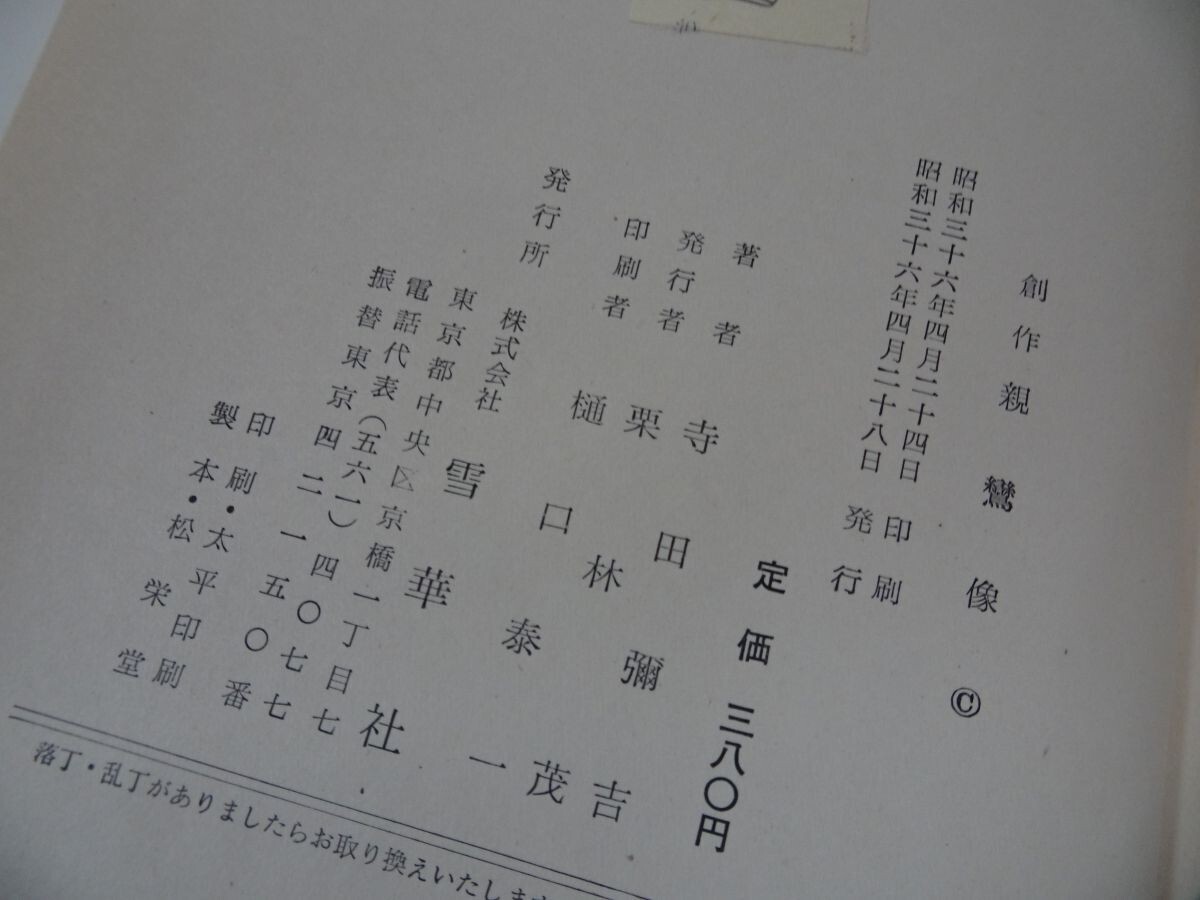 創作親鸞像 ©
昭和三十六年四月二十四日 印刷
昭和三十六年四月二十八日 発行
定価 三八〇円
著者 寺田彌吉
発行者 栗林茂
印刷者 樋口泰一
発行所 株式会社 雪華社
東京都中央区京橋一丁目七
電話代表(五六一)四〇七七
振替東京四二一五〇番
印刷・太平印刷
製本・松栄堂
落丁・乱丁がありましたらお取り換えいたします